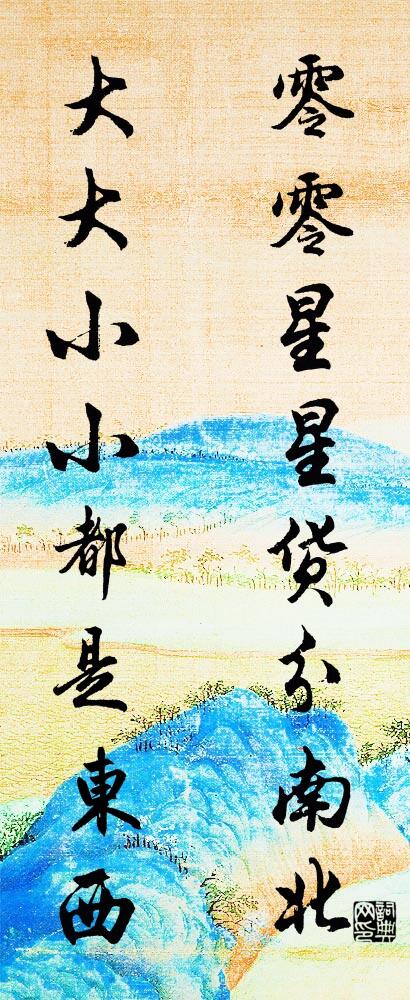 零零星星貨分南北
大大小小都是東西
詞典
网印